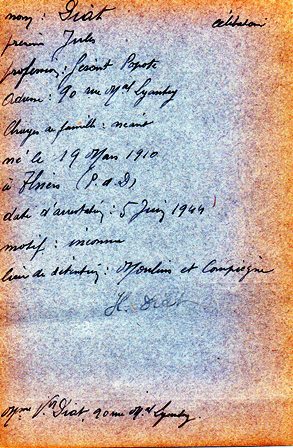 nom : Diat célibataire
prénom Jules
profession : Gérant Popote
Adresse : 90 rue Mal Lyautey
Charges de famille : néant
né le 19 Mars 1910
à (P. d. D)
date d'arrestation : 5 Juin 1944
motif : inconnu
lieu de détention : Moulins et Compiègne
H. Diat
Mme Vve Diat, 90 rue Mal Lyautey.